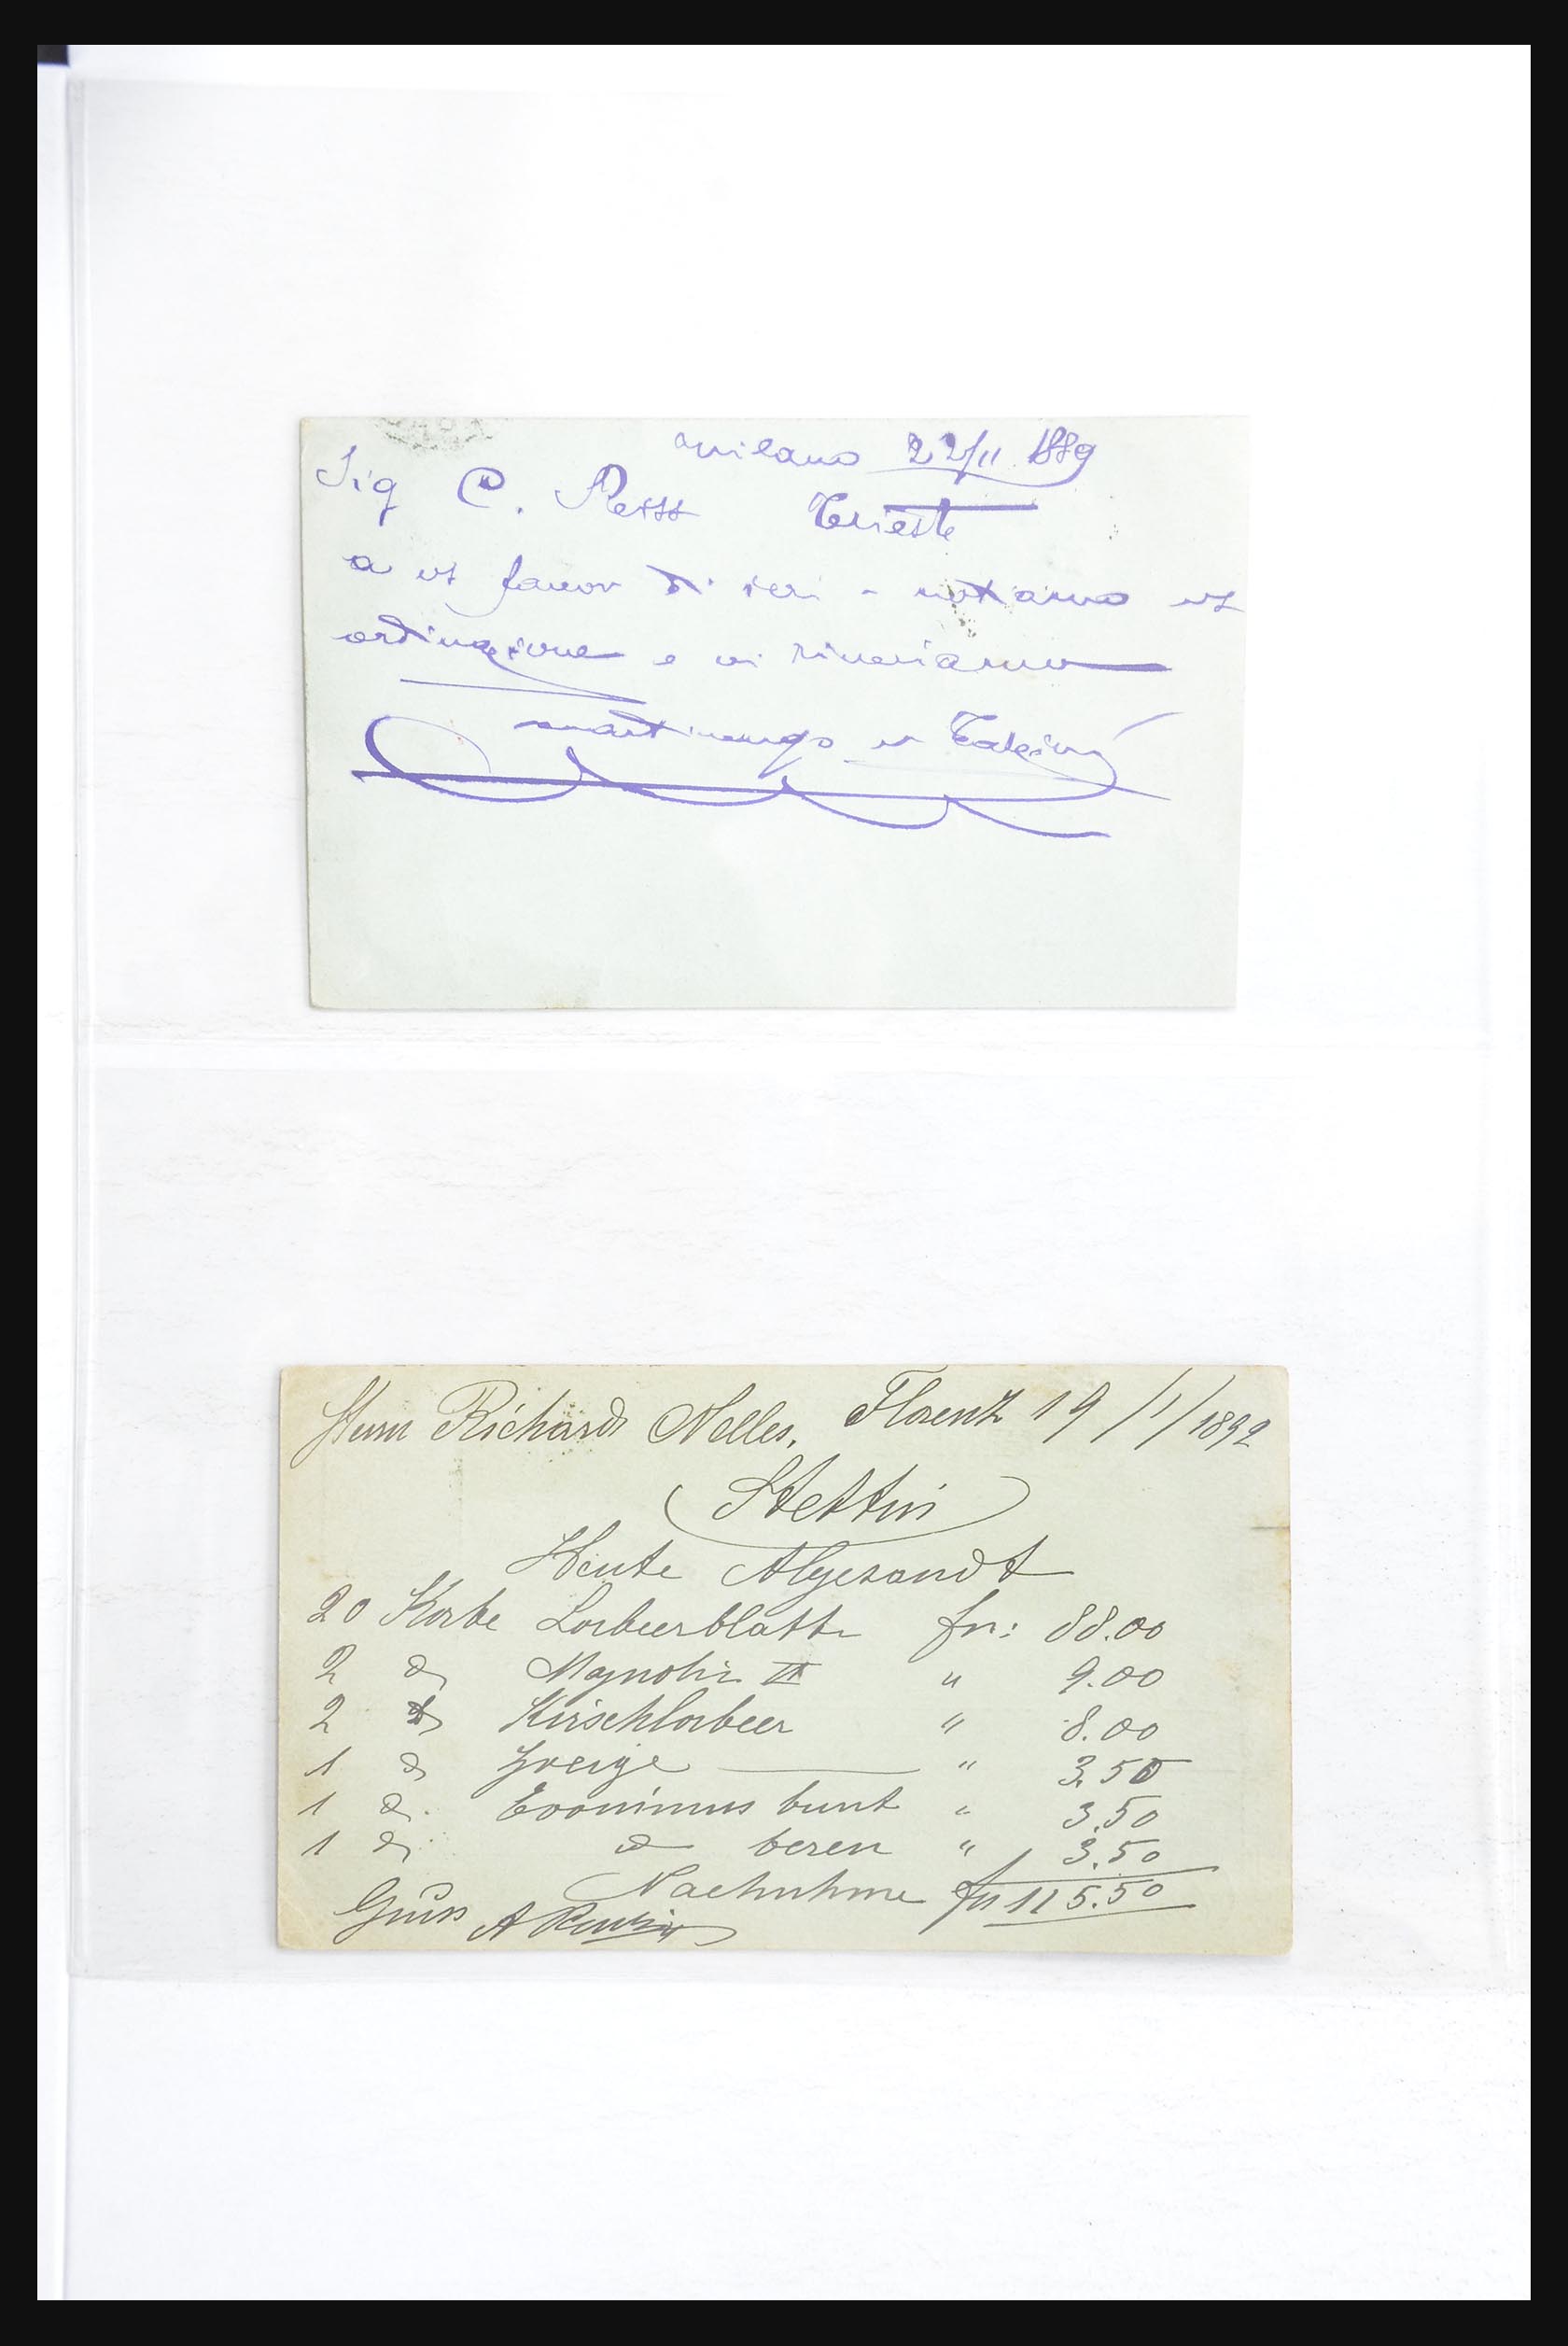 Milano 22/11 1889
Sig C. Trieste
a vs favor di ieri - notiamo vs
ordinazione e vi riveriamo
Herrn Richard Nelles, Florenz 19/1/1892
Stettin
Heute Abgesandt
20 Korbe Lorbeerblatter frs: 88.00
2 do Magnolia II " 9.00
2 do Kirschlorbeer " 8.00
1 do Zweige " 3.50
1 do. Evonimus bunt " 3.50
1 do do beren " 3.50
Nachnhme frs 115.50
Gruss A